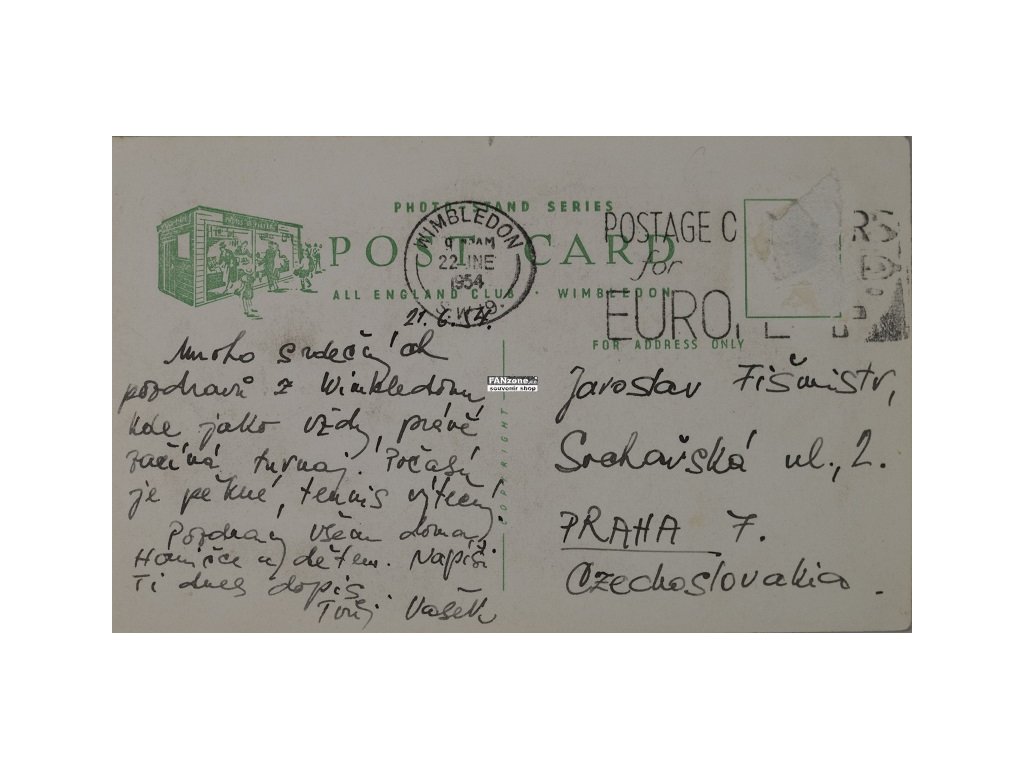 PHOTO STAND SERIES
POST CARD
ALL ENGLAND CLUB · WIMBLEDON
WIMBLEDON
AM
22 JNE
1954
S.W.19.
POSTAGE
for
EURO
FOR ADDRESS ONLY
COPYRIGHT
FANzone
souvenir shop
21. 6. 54.
Mnoho srdečných
pozdravů z Wimbledonu
kde jako vždy, právě
začíná turnaj. Počasí
je pěkné, tennis výtečný.
Pozdravuj všem doma,
Haničce a dětem. Napíši
Ti dnes dopis
Tvůj Vašek
Jaroslav Fišmistr,
ul., 2.
PRAHA 7.
Czechoslovakia.